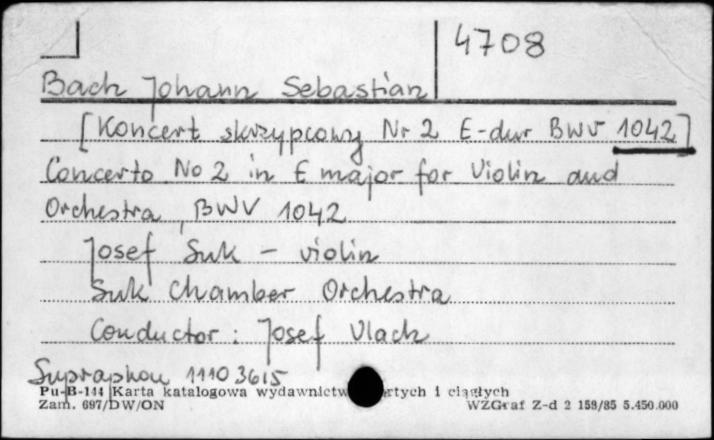 4708
Bach Johann Sebastian
[Koncert skrzypcowy Nr 2 E-dur BWV 1042]
Concerto No 2 in E major for Violin and
Orchestra, BWV 1042
Josef Suk - violin
Suk Chamber Orchestra
Conductor: Josef Vlach
Supraphon 1110 3615
Pu-B-144 Karta katalogowa wydawnictw i ciągłych
Zam. 697/DW/ON WZGraf Z-d 2 159/85 5.450.000